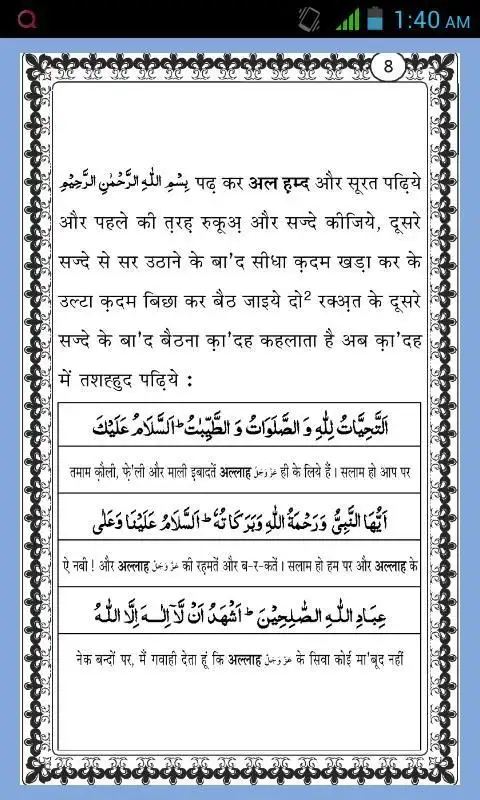 1:40 AM
8
بِسْمِ اللّٰهِ الرَّحْمٰنِ الرَّحِيْمِ पढ़ कर अल ह़म्द और सूरत पढ़िये
और पहले की त़रह़ रुकूअ़ और सज्दे कीजिये, दूसरे
सज्दे से सर उठाने के बा'द सीधा क़दम खड़ा कर के
उल्टा क़दम बिछा कर बैठ जाइये दो² रक्अ़त के दूसरे
सज्दे के बा'द बैठना क़ा'दह कहलाता है अब क़ा'दह
में तशह्हुद पढ़िये :
اَلتَّحِيَّاتُ لِلّٰهِ وَ الصَّلَوَاتُ وَ الطَّيِّبٰتُ ؕ اَلسَّلَامُ عَلَيْكَ
तमाम क़ौली, फ़े'ली और माली इबादतें अल्लाह عَزَّوَجَلَّ ही के लिये हैं। सलाम हो आप पर
اَيُّهَا النَّبِىُّ وَرَحْمَةُ اللّٰهِ وَبَرَكَاتُهٗ ؕ اَلسَّلَامُ عَلَيْنَا وَعَلٰى
ऐ नबी ! और अल्लाह عَزَّوَجَلَّ की रह़मतें और ब-र-कतें। सलाम हो हम पर और अल्लाह के
عِبَادِ اللّٰهِ الصّٰلِحِيْنَ ؕ اَشْهَدُ اَنْ لَّاۤ اِلٰهَ اِلَّا اللّٰهُ
नेक बन्दों पर, मैं गवाही देता हूं कि अल्लाह عَزَّوَجَلَّ के सिवा कोई मा'बूद नहीं